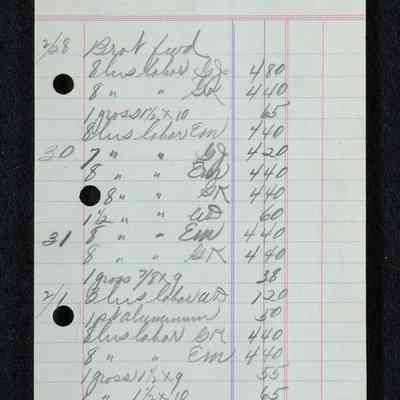 2/28 Brot fwd
8 hrs labor GJ 4 80
8 " " GK 4 40
1 gross 1 1/2 x 10 65
8 hrs labor EM 4 40
30 7 " " GJ 4 20
8 " " EM 4 40
8 " " GK 4 40
1 1/2 " " WD 60
31 8 " " EM 4 40
8 " " GK 4 40
1 gross 7/8 x 9 38
2/1 3 hrs labor WD 1 20
1 pt aluminum 50
8 hrs labor GK 4 40
8 " " EM 4 40
1 gross 1 1/2 x 9 55
" 1 1/2 x 10 65